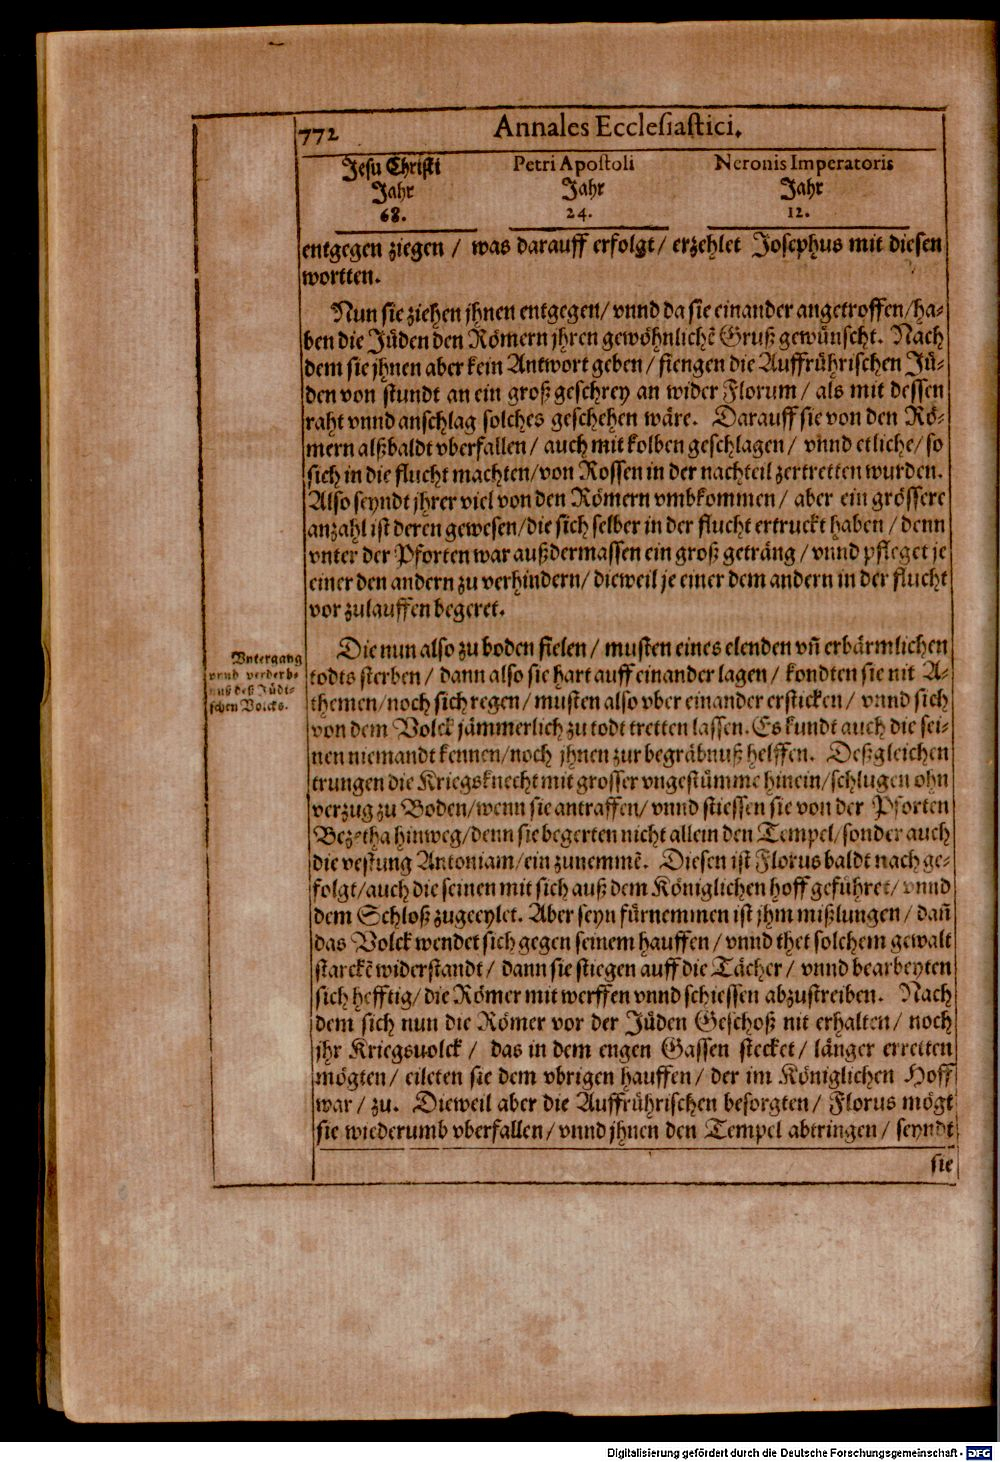 772
Annales Ecclesiastici.
Jesu Christi
Jahr
68.
Petri Apostoli
Jahr
24.
Neronis Imperatoris
Jahr
12.
entgegen ziegen / was darauff erfolgt / erzehlet Josephus mit diesen
wortten.
Nun sie ziehen jhnen entgegen / vnnd da sie einander angetroffen / ha-
ben die Jüden den Römern jhren gewöhnlichẽ Gruß gewünscht. Nach
dem sie jhnen aber kein Antwort geben / fiengen die Auffrührischen Jü-
den von stundt an ein groß geschrey an wider Florum / als mit dessen
raht vnnd anschlag solches geschehen wäre. Darauff sie von den Rö-
mern alßbaldt vberfallen / auch mit kolben geschlagen / vnnd etliche / so
sich in die flucht machten / von Rossen in der nachteil zertretten wurden.
Also seyndt jhrer viel von den Römern vmbkommen / aber ein grössere
anzahl ist deren gewesen / die sich selber in der flucht ertruckt haben / denn
vnter der Pforten war außdermassen ein groß geträng / vnnd pfleget je
einer den andern zu verhindern / dieweil je einer dem andern in der flucht
vor zulauffen begeret.
Die nun also zu boden fielen / musten eines elenden vñ erbärmlichen
todts sterben / dann also sie hart auff einander lagen / kondten sie nit A-
themen / noch sich regen / musten also vber einander ersticken / vnnd sich
von dem Volck jämmerlich zu todt tretten lassen. Es kundt auch die sei-
nen niemandt kennen / noch jhnen zur begräbnuß helffen. Deßgleichen
trungen die Kriegsknecht mit grosser vngestümme hinein / schlugen ohn
verzug zu Boden / wenn sie antraffen / vnnd stiessen sie von der Pforten
Bez-tha hinweg / denn sie begerten nicht allein den Tempel / sonder auch
die vestung Antoniam / ein zunemmẽ. Diesen ist Florus baldt nach ge-
folgt / auch die seinen mit sich auß dem Königlichen hoff geführet / vnnd
dem Schloß zugeeylet. Aber seyn fürnemmen ist jhm mißlungen / dañ
das Volck wendet sich gegen seinem hauffen / vnnd thet solchem gewalt
starckẽ widerstandt / dann sie stiegen auff die Tächer / vnnd bearbeyten
sich hefftig / die Römer mit werffen vnnd schiessen abzustreiben. Nach
dem sich nun die Römer vor der Jüden Geschoß nit erhalten / noch
jhr Kriegsvolck / das in dem engen Gassen stecket / länger erretten
mögten / eileten sie dem vbrigen hauffen / der im Königlichen Hoff
war / zu. Dieweil aber die Auffrührischen besorgten / Florus mögt
sie wiederumb vberfallen / vnnd jhnen den Tempel abtringen / seyndt
sie
Vntergang
vnnd verderb-
nus deß Jüdi-
schen Volcks.
Digitalisierung gefördert durch die Deutsche Forschungsgemeinschaft - DFG